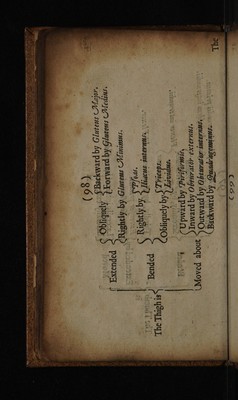 (98)
Obliquely
Backward by Gluteus Major,
Forward by Gluteus Medius.
Extended
Rightly by Gluteus Minimus.
Rightly by
Psoas.
Iliacus internus,
Bended
Obliquely by
Triceps.
Lividus.
The Thigh is
Upward by Pyriformis,
Inward by Obturator externus,
Moved about
Outward by Obturator internus,
Backward by
The